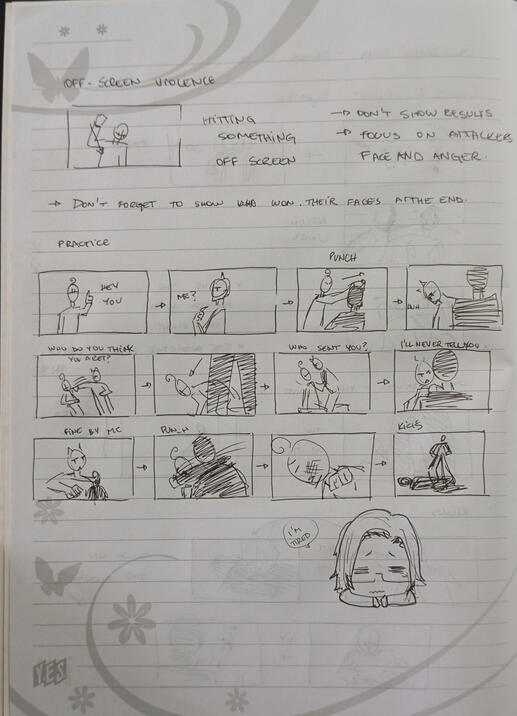 OFF-SCREEN VIOLENCE
HITTING
SOMETHING
OFF SCREEN
→ DON'T SHOW RESULTS
→ FOCUS ON ATTACKERS
FACE AND ANGER.
→ DON'T FORGET TO SHOW WHO WON. THEIR FACES AT THE END.
PRACTICE
PUNCH
HEY
YOU
ME?
WHO DO YOU THINK
YOU ARE??
WHO SENT YOU?
I'LL NEVER TELL YOU.
FINE BY ME
PUNCH
KICKS
I'M
TIRED
YES